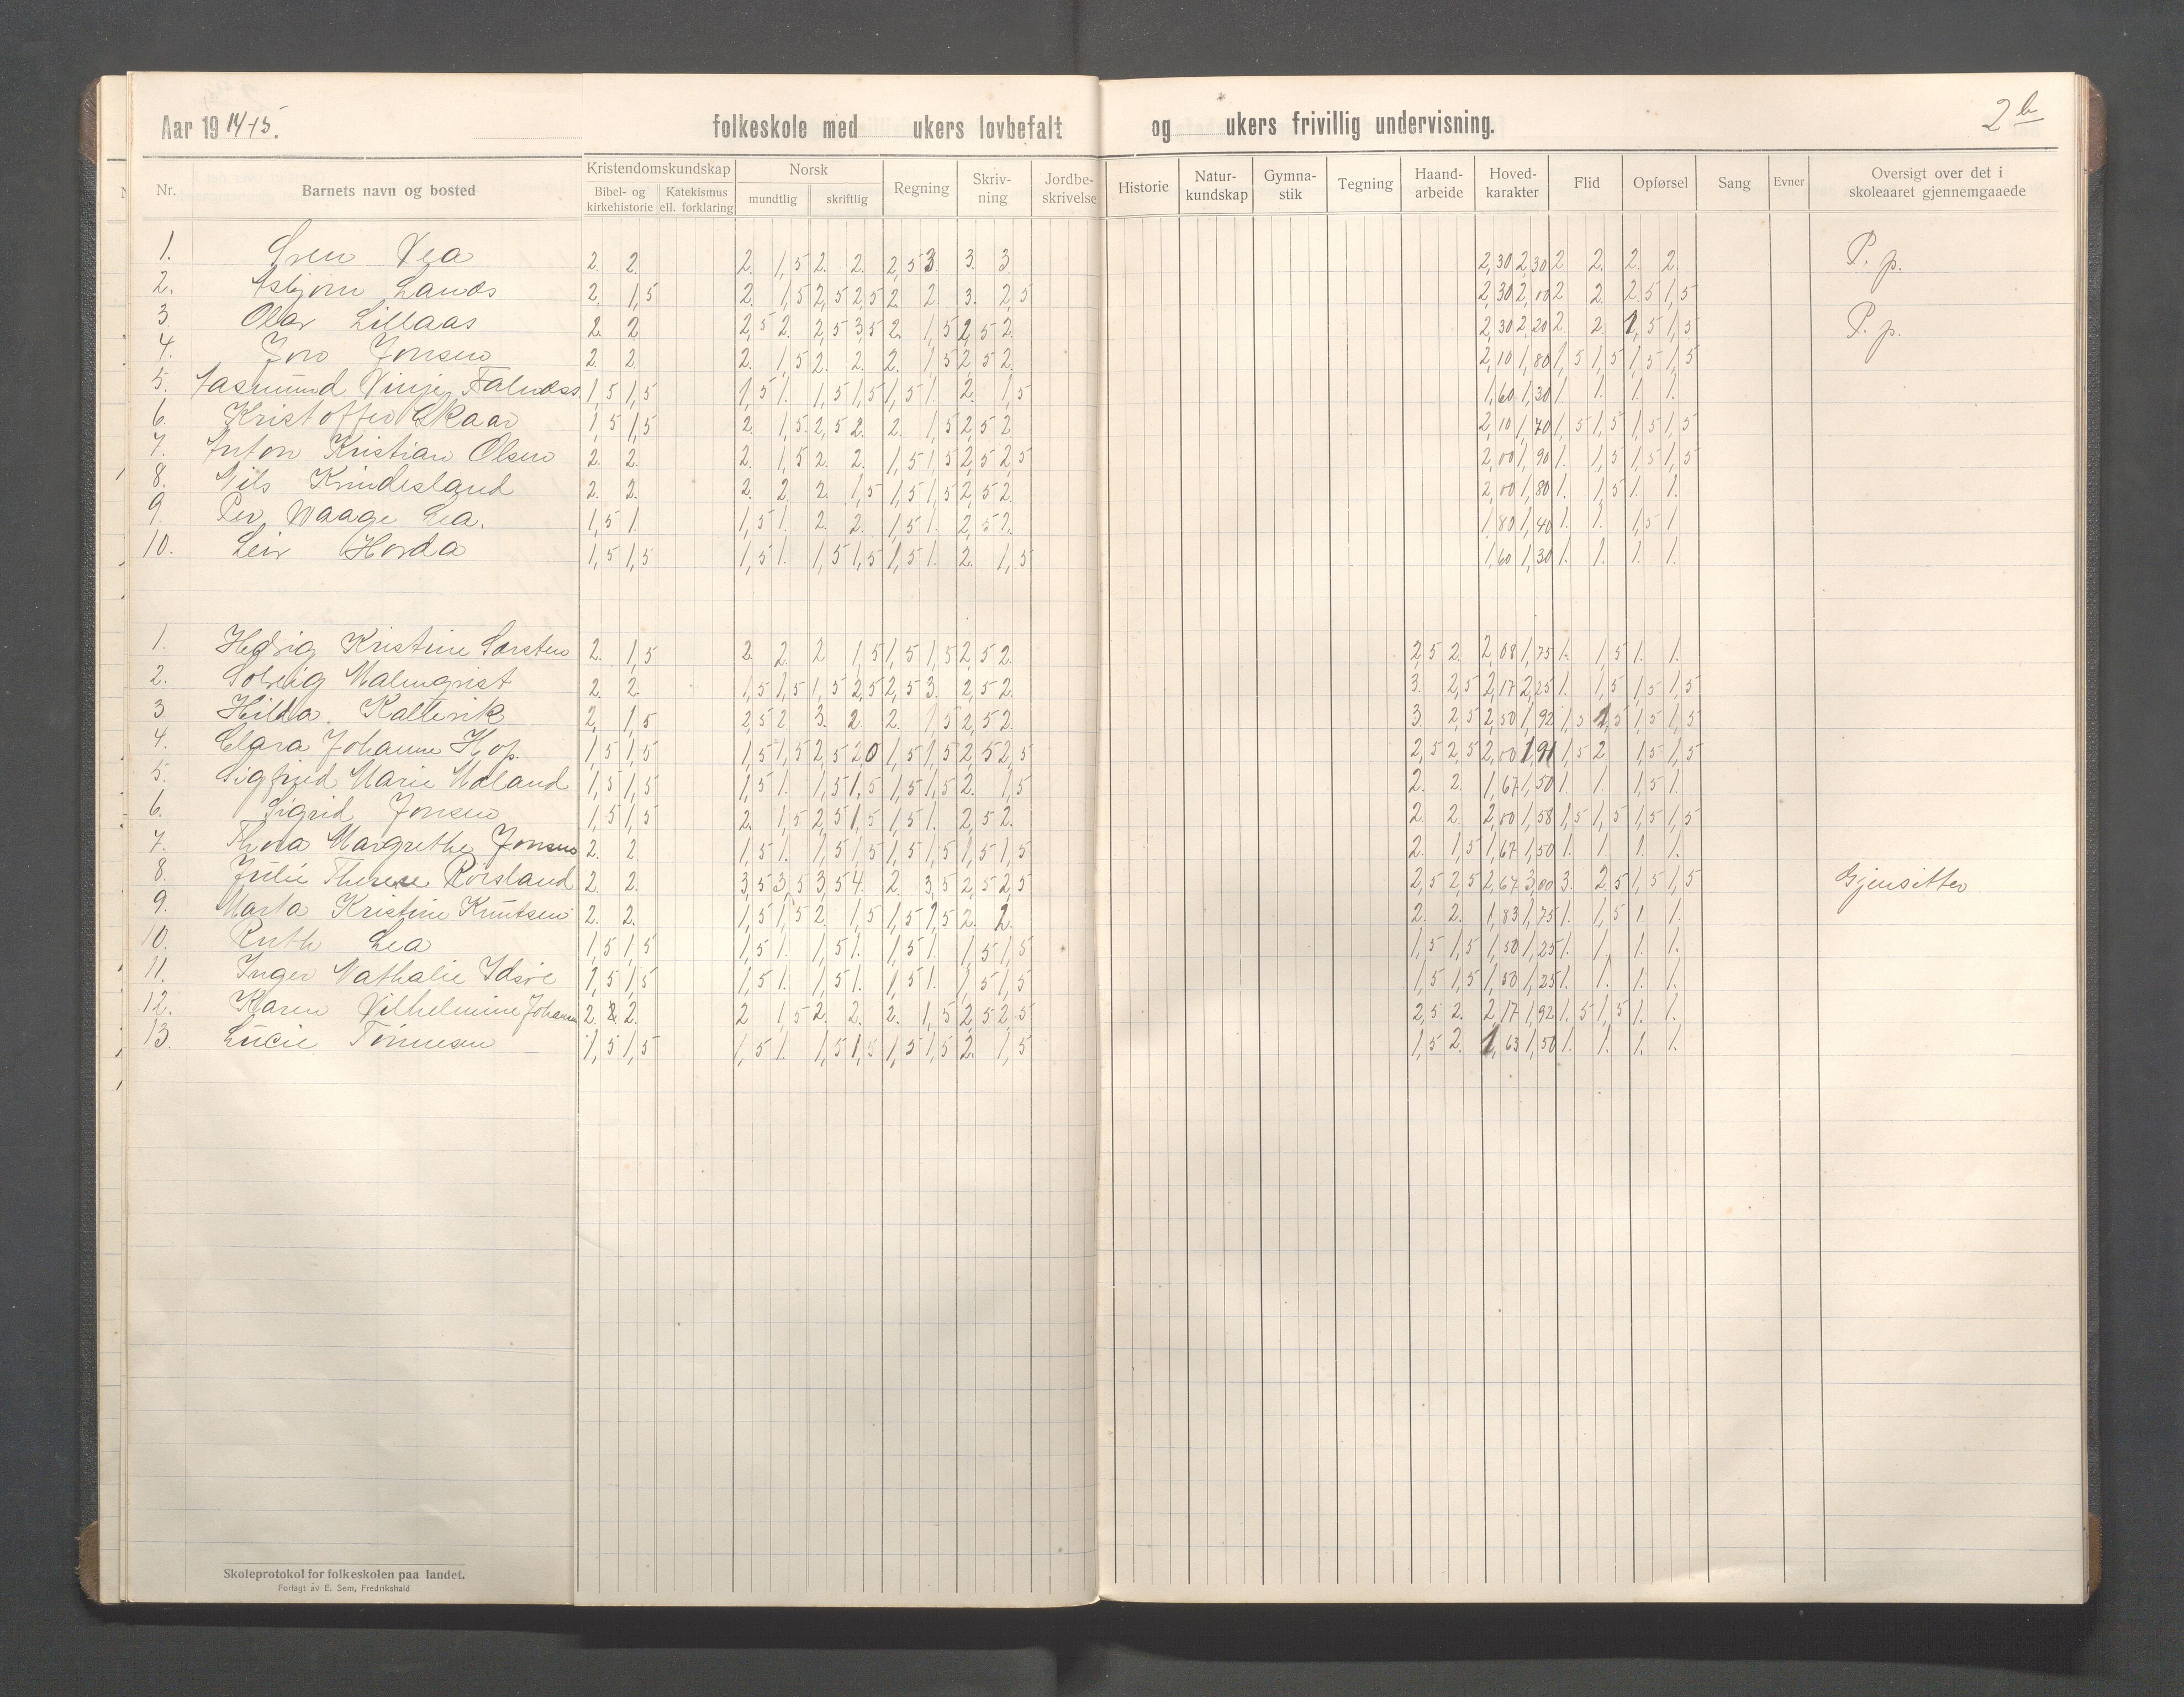 Aar 1914-15. folkeskole med ukers lovbefalt og ukers frivillig undervisning. 2b
Nr. Barnets navn og bosted Kristendomskundskap Norsk Regning Skriv-ning Jordbe-skrivelse Historie Natur-kundskap Gymna-stik Tegning Haand-arbeide Hoved-karakter Flid Opførsel Sang Evner Oversigt over det i skoleaaret gjennemgaaede
Bibel- og kirkehistorie Katekismus ell. forklaring mundtlig skriftlig
1. Sven Vea 2. 2. 2. 1,5 2. 2. 2,5 3. 3. 3. 2,30 2,30 2. 2. 2. 2. P. p.
2. Asbjørn Lands 2. 1,5 2. 1,5 2,5 2,5 2. 2. 3. 2,5 2,30 2,00 2. 2. 2,5 1,5
3. Olav Lillaas 2. 2. 2,5 2. 2,5 3,5 2. 1,5 2,5 2. 2,30 2,20 2. 2. 1,5 1,5 P. p.
4. Jon Jonsen 2. 2. 2. 1,5 2. 2. 2. 1,5 2,5 2. 2,10 1,80 1,5 1,5 1,5 1,5
5. Aasmund Vinje Falnæss 1,5 1,5 1,5 1. 1,5 1,5 1,5 1. 2. 1,5 1,60 1,30 1. 1. 1. 1.
6. Kristoffer Skaar 1,5 1,5 2. 1,5 2,5 2. 2. 1,5 2,5 2. 2,10 1,70 1,5 1,5 1,5 1,5
7. Anton Kristian Olsen 2. 2. 2. 1,5 2. 2. 1,5 1,5 2,5 2,5 2,00 1,90 1. 1,5 1,5 1,5
8. Nils Knudesland 2. 2. 2. 2. 2. 1,5 1,5 1,5 2,5 2. 2,00 1,80 1. 1,5 1. 1.
9 Per Waage Lea. 1,5 1. 1,5 1. 2. 2. 1,5 1. 2,5 2. 1,80 1,40 1. 1. 1,5 1
10. Leiv Horda 1,5 1,5 1,5 1. 1,5 1,5 1,5 1. 2. 1,5 1,60 1,30 1. 1. 1. 1.
1. Hedvig Kristine Larsten 2. 1,5 2. 2. 2 1,5 1,5 1,5 2,5 2. 2,5 2. 2,08 1,75 1. 1,5 1. 1.
2. Solveig Malmqvist 2. 2. 1,5 1,5 1,5 2,5 2,5 3. 2,5 2. 3. 2,5 2,17 2,25 1. 1,5 1,5 1,5
3 Hilda Kaltevik 2. 1,5 2,5 2 3. 2. 2. 1,5 2,5 2. 3. 2,5 2,50 1,92 1,5 1,5 1,5 1,5
4. Clara Johanne Hop. 1,5 1,5 1,5 1,5 2,5 2,0 1,5 1,5 2,5 2,5 2,5 2,5 2,00 1,91 1,5 2. 1,5 1,5
5. Sigfrid Marie Mæland 1,5 1,5 1,5 1. 1,5 1,5 1,5 1,5 2. 1,5 2. 2. 1,67 1,50 1. 1. 1,5 1.
6. Sigrid Jonsen 1,5 1,5 2. 1,5 2,5 1,5 1,5 1. 2,5 2. 2. 2. 2,00 1,58 1,5 1,5 1,5 1,5
7. Thora Margrethe Jonsen 2. 2 1,5 1. 1,5 1,5 1,5 1,5 1,5 1,5 2. 1,5 1,67 1,50 1. 1. 1. 1.
8. Julie Therese Roisland 2. 2. 3,5 3,5 3,5 4. 2. 3,5 2,5 2,5 2,5 2,5 2,67 3,00 3. 2,5 1,5 1,5 Gjensitter
9. Marta Kristine Knutsen 2. 2. 1,5 1,5 2. 1,5 1,5 1,5 2. 2. 2. 2. 1,83 1,75 1. 1,5 1. 1.
10. Ruth Lea 1,5 1,5 1,5 1. 1,5 1. 1,5 1. 1,5 1,5 1,5 1,5 1,50 1,25 1. 1. 1. 1.
11. Inger Nathalie Idsøe 1,5 1,5 1,5 1. 1,5 1. 1,5 1. 1,5 1,5 1,5 1,5 1,50 1,25 1. 1. 1. 1.
12. Karen Vilhelmine Johansen 2. 2. 2 1,5 2. 2. 2. 1,5 2,5 2,5 2,5 2. 2,17 1,92 1,5 1,5 1. 1.
13. Lucie Tønnesen 1,5 1,5 1,5 1. 1,5 1,5 1,5 1,5 2. 1,5 1,5 2. 1,63 1,50 1. 1. 1. 1.
Skoleprotokol for folkeskolen paa landet.
Forlagt av E. Sem, Fredrikshald